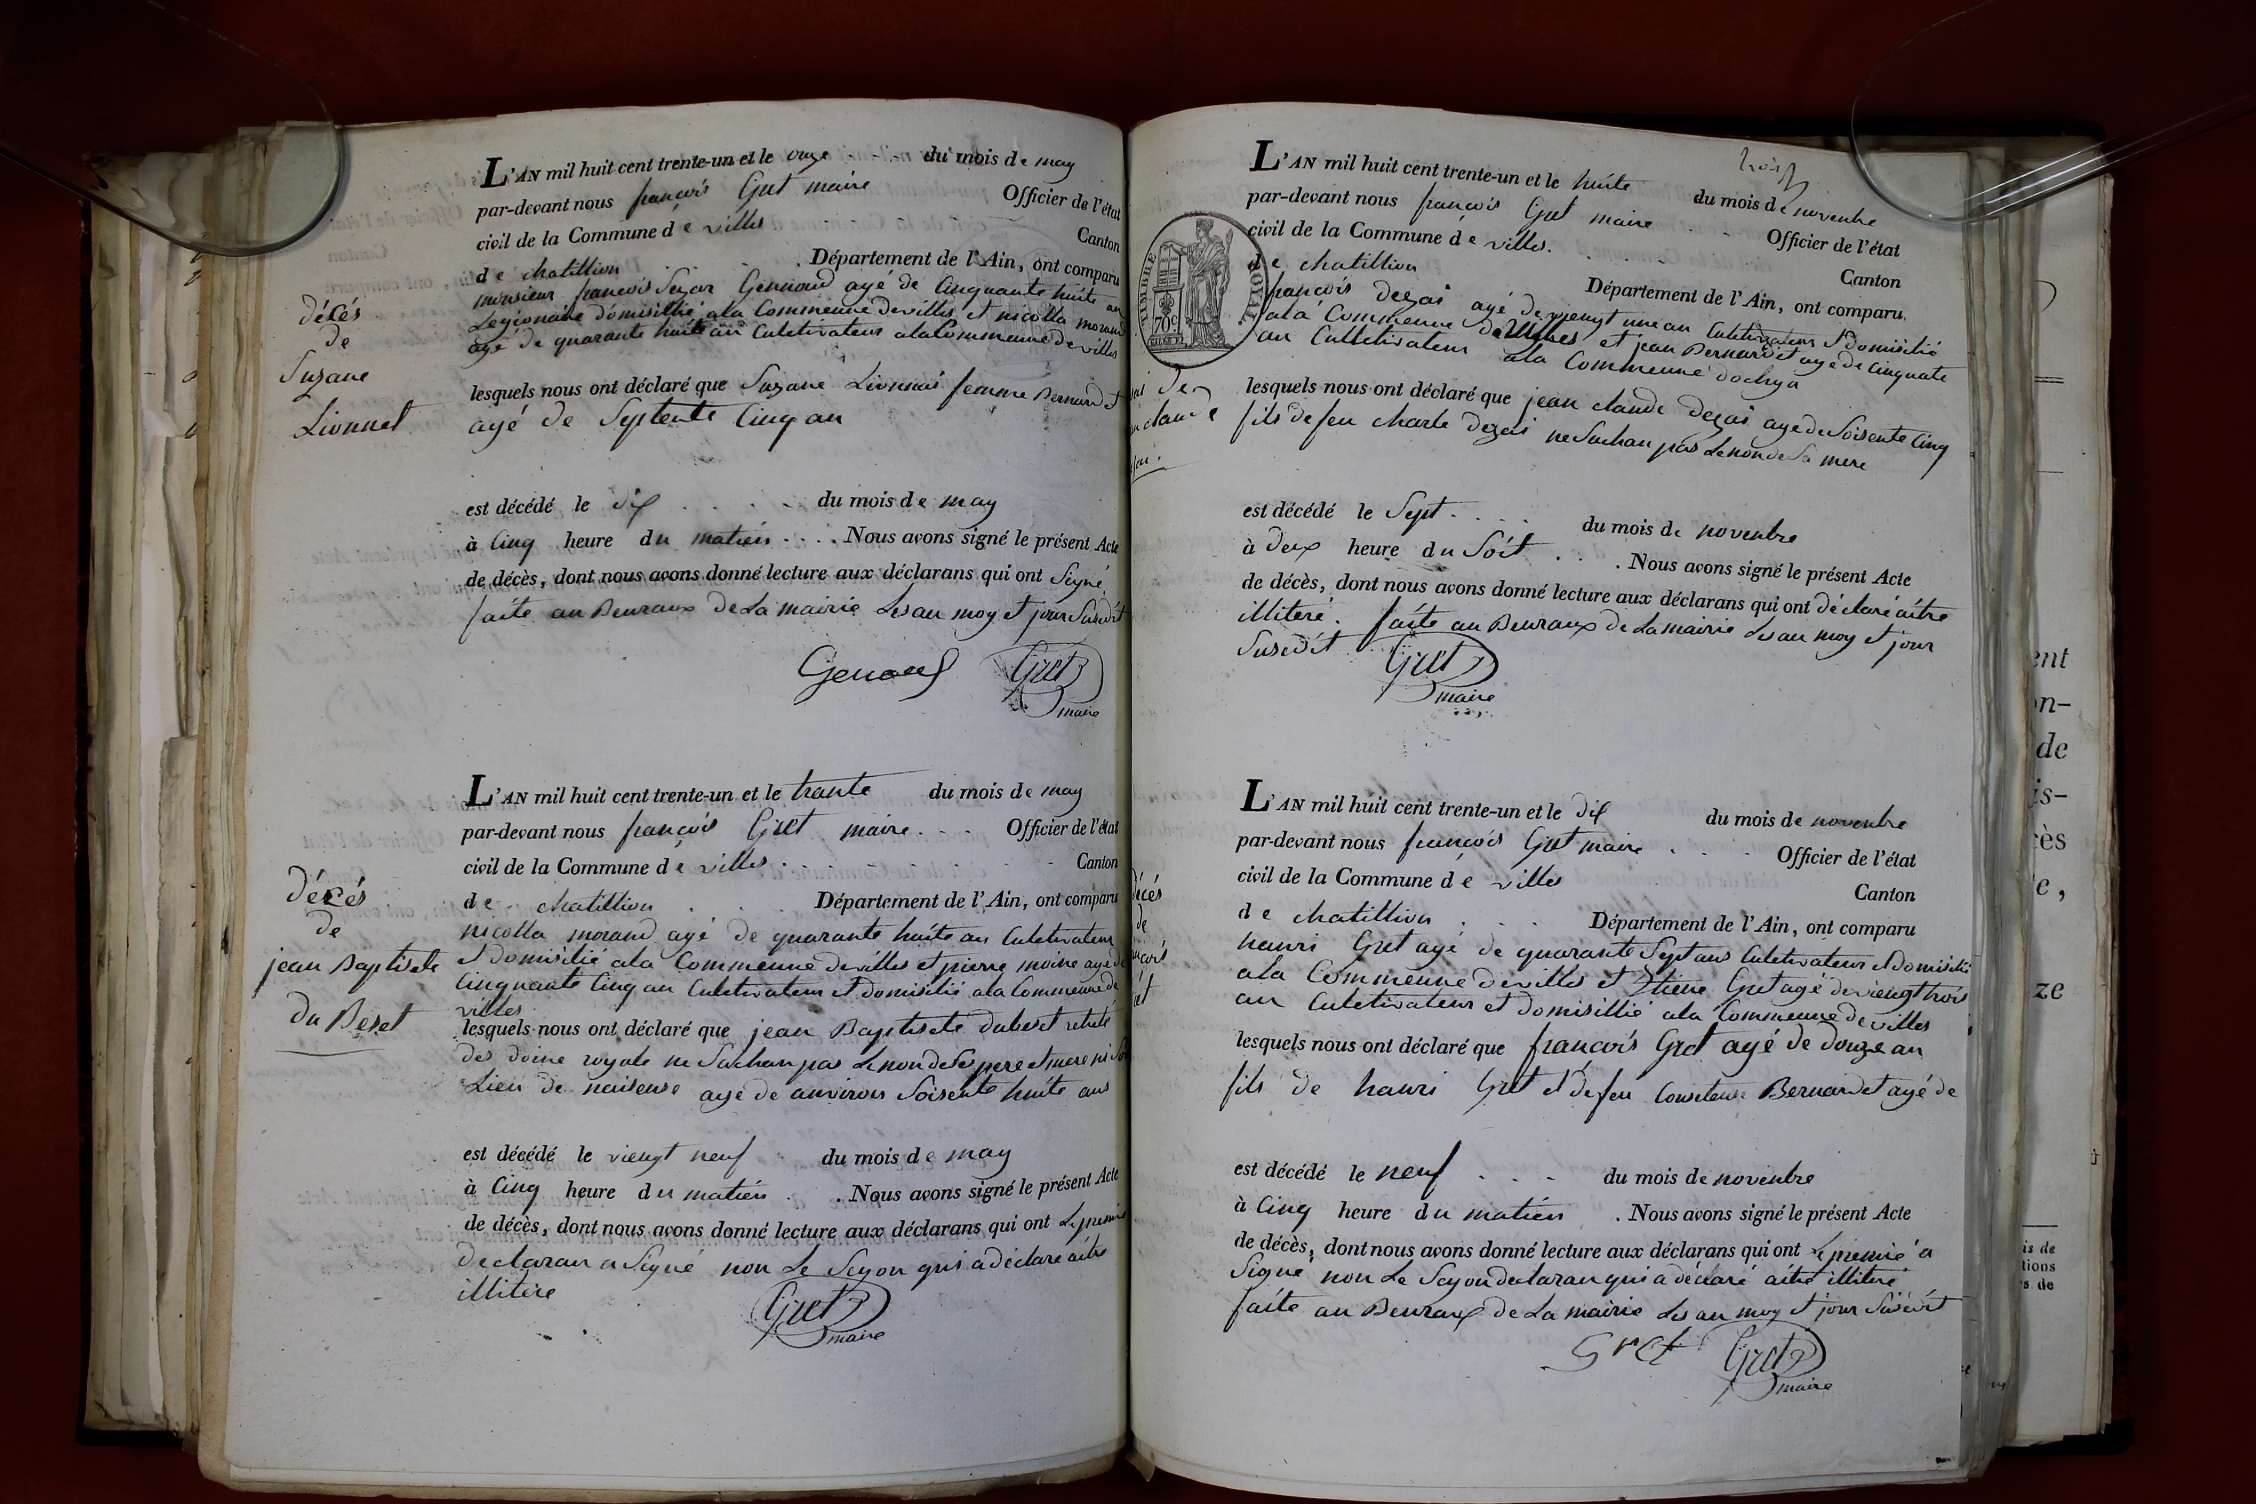 L'AN mil huit cent trente-un et le onze du mois de may
par-devant nous francois Gret maire Officier de l'état
civil de la Commune dé villes Canton
de chatillion Département de l'Ain, ont comparu
monsieur francois Genoud agé de Cinquante huite an
Legionaire domisillié ala Commeune devilles et nicolla morand
agé de quarante huite an Culetivateur alaCommeune de villes
décés
de
Suzane
Lionnet
lesquels nous ont déclaré que Suzane Lionnai femme Bernardet
agé de Septente Cinq an
est décédé le dix du mois de may
à Cinq heure du matien Nous avons signé le présent Acte
de décès, dont nous avons donné lecture aux déclarans qui ont Signé
faite au Beuraux de La mairie Les an moy et jour Susedit
Genoud Gret
maire
L'AN mil huit cent trente-un et le trante du mois de may
par-devant nous francois Gret maire Officier de l'état
civil de la Commune dé villes Canton
de chatillion Département de l'Ain, ont comparu
nicolla morand agé de quarante huite an Culetivateur
et domisilié ala Commeune devilles et pierre moine agé de
Cinquante Cinq an Culetivateur et domisilié ala Commeune de
villes
décés
de
jean Baptisete
du Beset
lesquels nous ont déclaré que jean Baptisete dubeset retreté
des doine royale ne Sachan pas Le non de Ses pere et mere ni Son
Lieu de naisense agé de anviron Soisente huite ans
est décédé le viengt neuf du mois de may
à Cinq heure du matien Nous avons signé le présent Acte
de décès, dont nous avons donné lecture aux déclarans qui ont Le premié
declaran a Signé non Le Segon qui a déclaré aitre
illitére
Gret
maire
trois
L'AN mil huit cent trente-un et le huite du mois de novenbre
par-devant nous francois Gret maire Officier de l'état
civil de la Commune dé villes. Canton
de chatillion Département de l'Ain, ont comparu
francois dezai agé de viengt une an Culetivateur et domisilié
ala Commeune de villes et jean Bernardet agé de Cinquate
an Culletivateur ala Commeune dochya
TIMBRE ROYAL
70c
de
claude
lesquels nous ont déclaré que jean claude dezai agé de Soisente Cinq
fils de feu charle dezai ne Sachan pas Le non de Sa mere
est décédé le Sept du mois de novenbre
à deux heure du Soit Nous avons signé le présent Acte
de décès, dont nous avons donné lecture aux déclarans qui ont déclaré aitre
illiteré. faite au Beuraux de La mairie Les an moy et jour
Susedit Gret
maire
L'AN mil huit cent trente-un et le dix du mois de novenbre
par-devant nous francois Gret maire Officier de l'état
civil de la Commune dé villes Canton
de chatillion Département de l'Ain, ont comparu
hanri Gret agé de quarante Sept ans Culetivateur et domisilié
ala Commeune devilles et Etiene Gret agé de viengt trois
an Culetivateur et domisillié ala Commeune de villes
décés
de
lesquels nous ont déclaré que francois Gret agé de douze an
fils de hanri Gret et de feu Bernardet agé de
est décédé le neuf du mois de novenbre
à Cinq heure du matien Nous avons signé le présent Acte
de décès, dont nous avons donné lecture aux déclarans qui ont Le premié a
Signé non Le Segon declaran qui a déclaré aitre illiteré
faite au Beuraux de La mairie Les an moy et jour Susedit
Gret Gret
maire